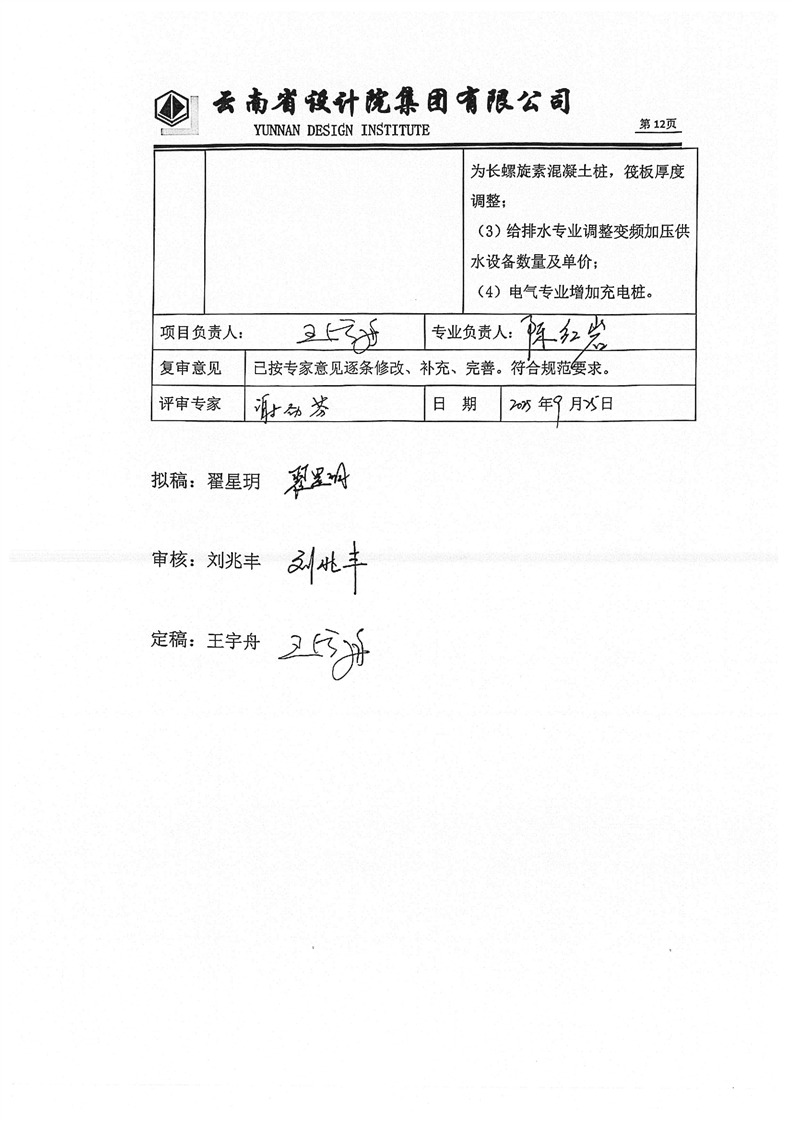 云南省设计院集团有限公司
YUNNAN DESIGN INSTITUTE
第 12页
为长螺旋素混凝土桩，筏板厚度
调整；
（3）给排水专业调整变频加压供
水设备数量及单价；
（4）电气专业增加充电桩。
项目负责人： 王宇舟 专业负责人： 陈红岩
复审意见 已按专家意见逐条修改、补充、完善。符合规范要求。
评审专家 日 期 2025 年9月25日
拟稿：翟星玥 翟星玥
审核：刘兆丰 刘兆丰
定稿：王宇舟 王宇舟